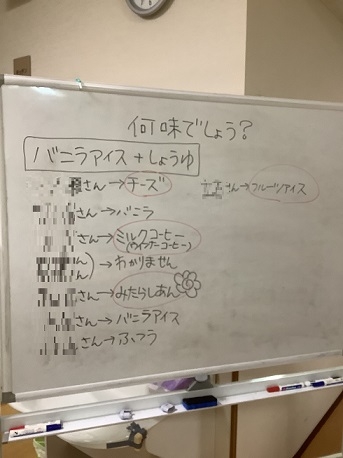 何味でしょう?
バニラアイス+しょうゆ
さん→チーズ
さん→フルーツアイス
さん→バニラ
さん→ミルクコーヒー
(ウインナーコーヒー)
ん)→わかりません
ん
さん→みたらしあん
さん→バニラアイス
さん→ふつう